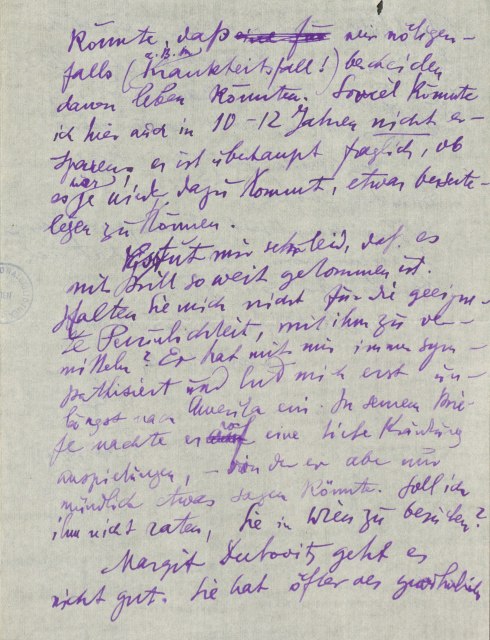 könnte, daß ~~eine für~~ wir nötigen-
falls (z. B. im Krankheitsfall!) bescheiden
davon leben könnten. Soviel könnte
ich hier auch in 10-12 Jahren nicht er-
sparen, es ist überhaupt fraglich, ob
es je wieder dazu kommt, etwas beiseite-
legen zu können.
Es tut mir sehr leid, daß es
mit Brill so weit gekommen ist.
Halten Sie mich nicht für die geeigne-
te Persönlichkeit, mit ihm zu ver-
mitteln? Er hat mit mir immer sym-
pathisiert und lud mich erst un-
längst nach Amerika ein. In seinem Brie-
fe machte er auf eine tiefe Kränkung
Anspielungen, – von der er aber nur
mündlich etwas sagen könnte. Soll ich
ihm nicht raten, Sie in Wien zu besuchen?
Margit Dubovitz geht es
nicht gut. Sie hat öfter als gewöhnlich